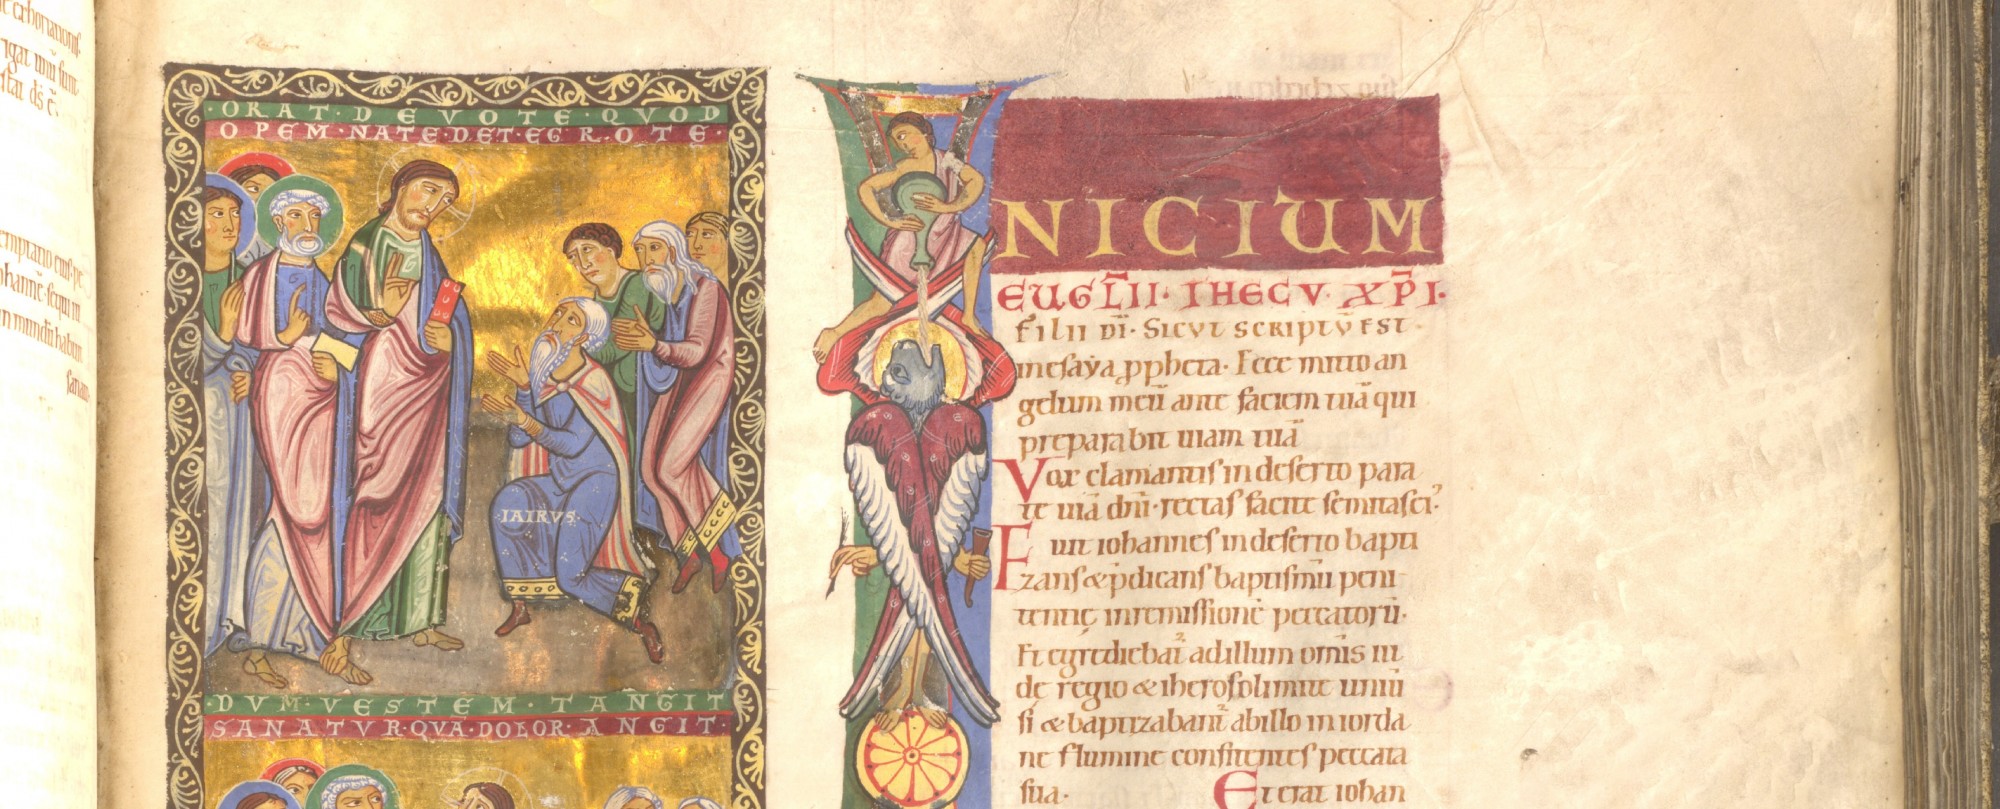 ·ORAT·DEVOTE·QVOD
OPEM·NATE·DET·EGROTE·
·IAIRVS·
·DVM·VESTEM·TANGIT
SANATVR·QVA·DOLOR·ANGIT·
INICIUM
EUG̅LII·IHECV·XP̅I·
filii di̅·Sicut scriptu̅ est·
in esaya ꝓpheta·Ecce mitto an
gelum meu̅ ante faciem tua̅ qui
preparabit uiam tua̅
Vox clamantis in deserto para
te uia̅ dn̅i·rectas facite semitas ei᾿·
Fuit iohannes in deserto bapti
zans & p̅dicans baptismu̅ peni
tentię in remissione̅ peccatoru̅·
Et egrediebat᷑ ad illum omnis iu
dę regio & iherosolimite uniu̅
si & baptizabant᷑ ab illo in iorda
ne flumine confitentes peccata
sua· Et erat iohan